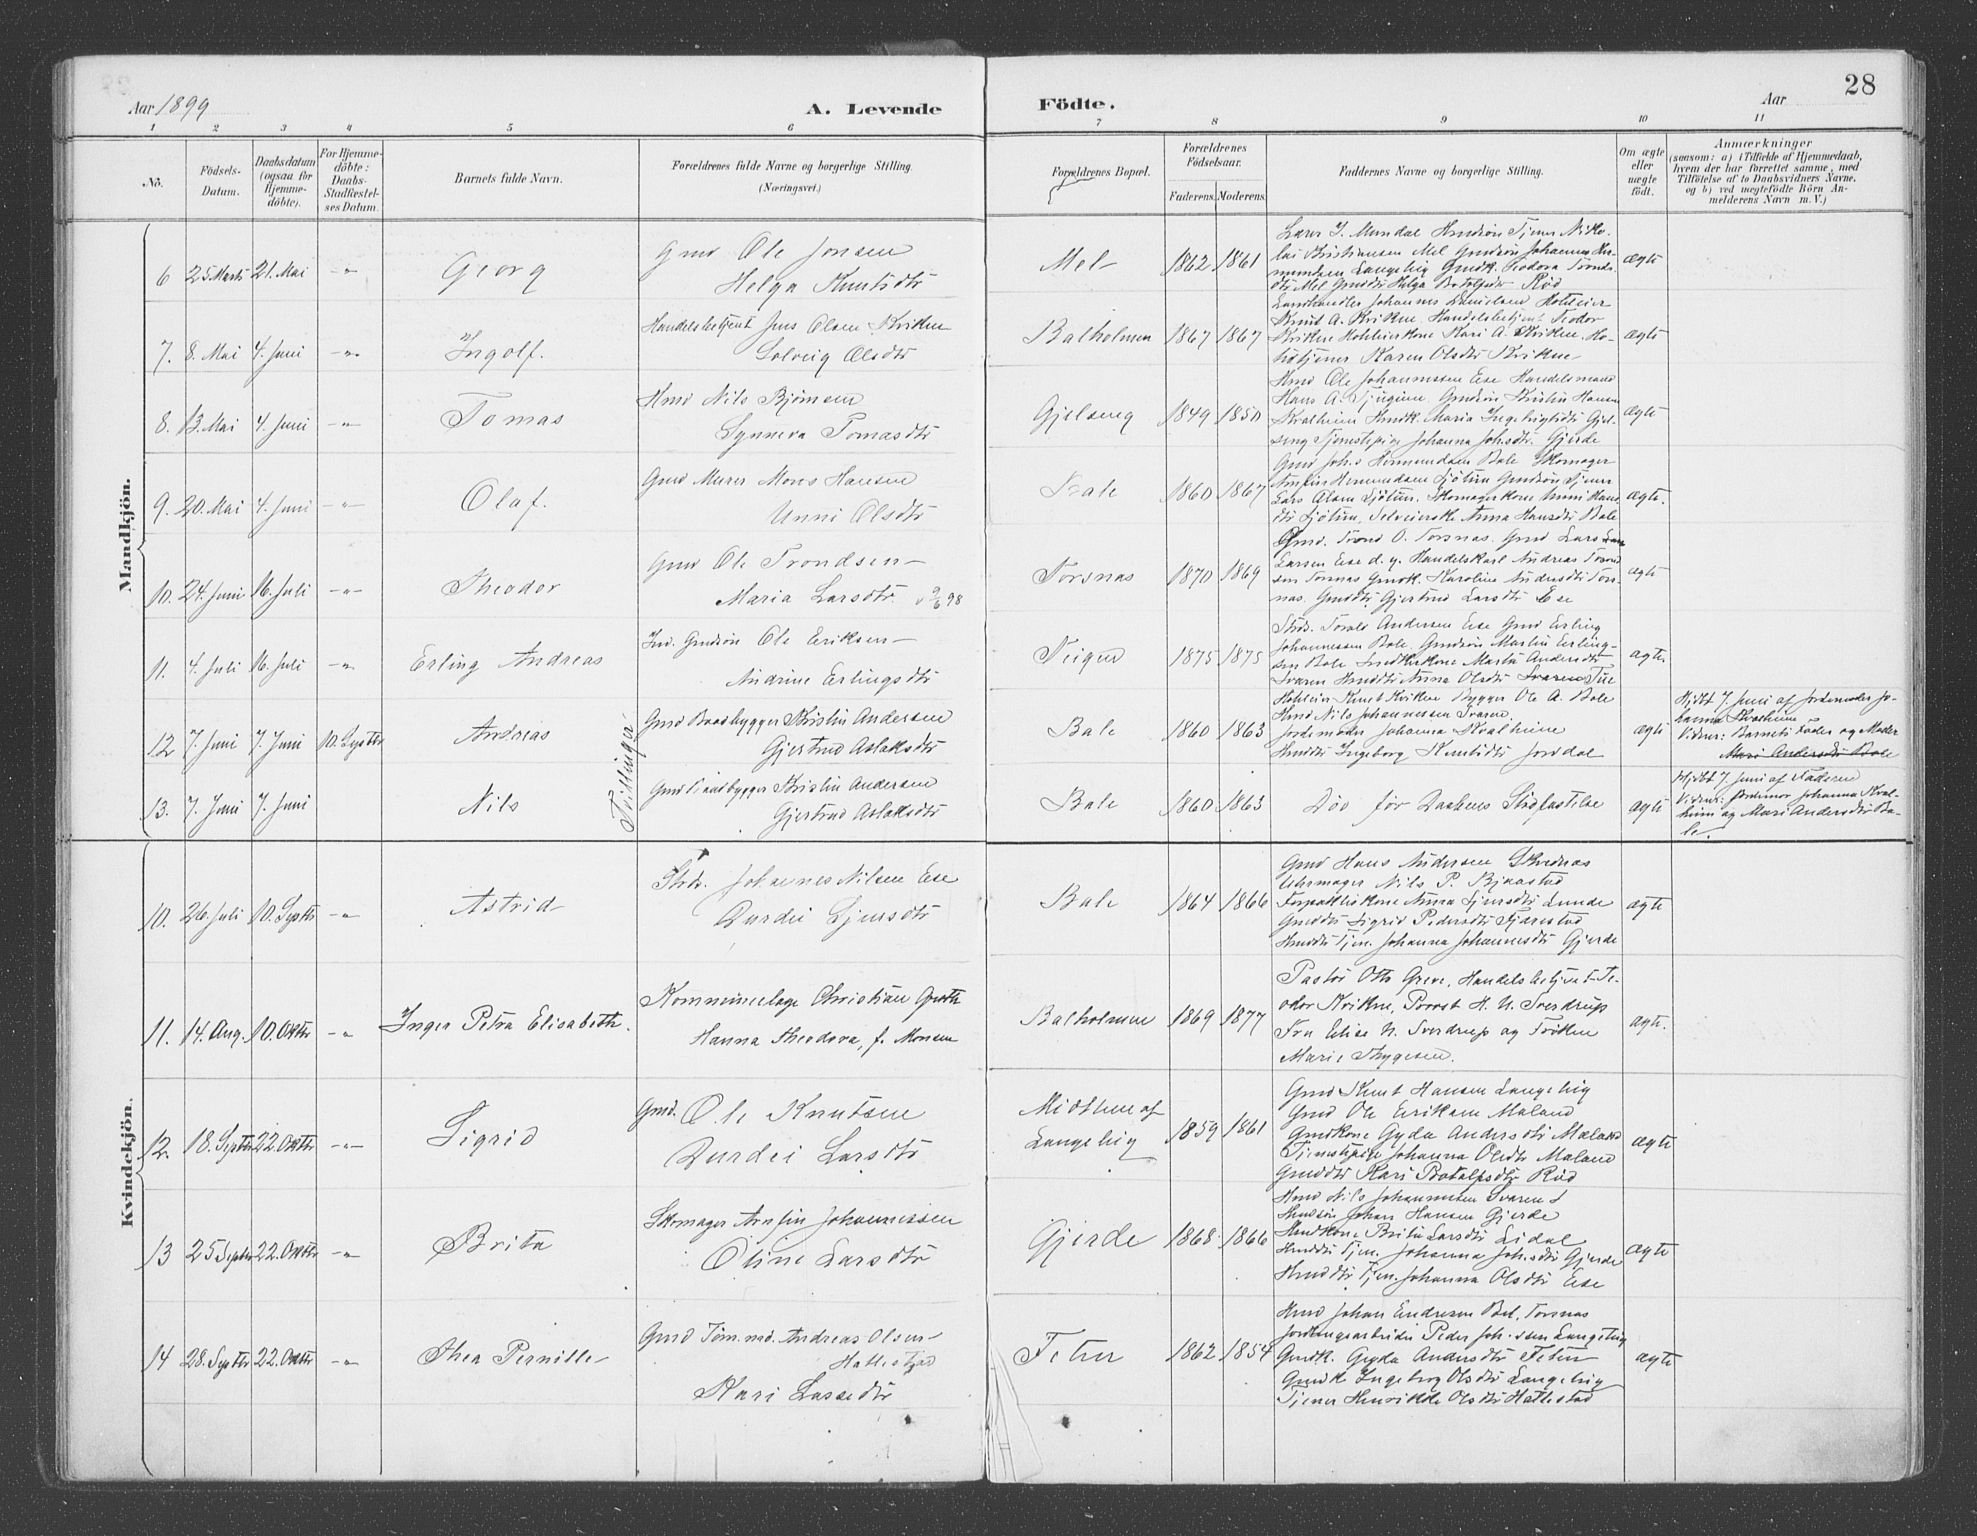 Aar 1899
A. Levende
Födte.
Aar
28
1 2 3 4 5 6 7 8 9 10 11
No.
Födsels-Datum.
Daabsdatum (ogsaa for Hjemme-döbte).
For Hjemme-döbte: Daabs-Stadfæstel-ses Datum.
Barnets fulde Navn.
Forældrenes fulde Navne og borgerlige Stilling.
(Næringsvei.)
Forældrenes Bopæl.
Forældrenes Födselsaar.
Faderens. Moderens.
Faddernes Navne og borgerlige Stilling.
Om ægte eller uægte födt.
Anmærkninger
(saasom: a) i Tilfælde af Hjemmedaab, hvem der har forrettet samme, med Tilföielse af to Daabsvidners Navne, og b) ved uægtefödte Börn An-melderens Navn m. V.)
Mandkjön.
6 25 Marts 21. Mai -"- Georg
Gmd Ole Jonsen
Helga Knutsdtr
Mel 1862 1861
Lærer J. Mundal Hmdsön Tjener Niko-
lai Kristiansen Mel Gmdsön Johannes Her-
mundsen Langebig Gmdk. Teodora Tronds-
dtr Mel Gmddtr Helga Botolfsdtr Röd
ægte
7. 8. Mai 4. Juni -"- Ingolf.
Handelsbetjent Jens Olsen Kvikne
Solveig Olsdtr
Balholmen 1867 1867
Landhandler Johannes Danielsen Hoteleier
Knut A. Kvikne Handelsbetjent Teodor
Kvikne Hoteleierkone Kari A. Kvikne Ho-
teltjener Karen Olsdtr Kvikne
ægte
8. 13. Mai 4. Juni -"- Tomas
Hmd Nils Björnsen
Synneva Tomasdtr
Gjelseng 1849 1850
Hmd Ole Johannessen Ese Handelsmand
Hans A. Tjugum Gmdsön Kristen Hansen
Kvalheim Hmdk. Maria Ingebrigtsdtr Gjel-
seng Tjenestepige Johanna Johsdtr. Gjerde
ægte
9. 20. Mai 4. Juni -"- Olaf.
Gmd Murer Mons Hansen
Unni Olsdtr
Bale 1860 1867
Gmd Johs Hermundsen Bale Skomager
Arnfin Hermundsen Sjötun Gmdsön Tjener
Lars Olsen Sjötun. Skomagerkone Unni Hans-
dtr Sjötun, Selveierske Anna Hansdtr Bale
ægte.
10. 24. Juni 16. Juli -"- Theodor
Gmd Ole Trondsen
Maria Larsdtr. v 9/6 98
Torsnas 1870 1869
Gmd. Trond O. Torsnas. Gmd Lars
Larsen Ese d. y. Handelskarl Andreas Trond-
sen Torsnas Gmdk. Karoline Andersdtr Tors-
nas. Gmddtr Gjertrud Larsdtr Ese
ægte
11. 4. Juli 16. Juli -"- Erling Andreas
Ind. Gmdsön Ole Eriksen
Andrine Erlingsdtr
Teigen 1875 1875
Strds. Torals Andersen Ese Gmd Erling
Johannessen Bale. Gmdsön Martin Erling-
sen Bale Indkkone Marta Andersdtr
Svaren Hmddtr Anna Olsdtr Svaren
ægte
12 7. Juni 7. Juni 10. Septbr Andreas
Tvillinger
Gmd Baadbygger Kristen Andersen
Gjertrud Aslaksdtr
Bale 1860 1863
Hoteleier Knut Kvikne Bygger Ole A. Bale
Hmd Nils Johannessen Svaren
Jordemoder Johanna Kvalheim
Hmddtr Ingeborg Knutsdtr Jordal
ægte
Hjdbt 7. Juni af Jordemoder Jo-
hanna Kvalheim
Vidner: Barnets Fader og Moder
Mari Andersdtr Bale
13. 7. Juni 7. Juni Nils
Gmd Baadbygger Kristen Andersen
Gjertrud Aslaksdtr
Bale 1860 1863
Död för Daabens Stadfæstelse
ægte
Hjdbt 7. Juni af Faderen
Vidner: Jordemor Johanna Kval-
heim og Mari Andersdtr Ba-
le.
Kvindekjön.
10. 26. Juli 10. Septbr -"- Astrid
Strds. Johannes Nilsen Ese
Durdei Sjursdtr
Bale 1864 1866
Gmd Hans Andersen Skrednas
Uhrmager Nils P. Bjåstad
Forpagterkone Anna Sjursdtr Lunde
Gmddtr Sigrid Pedersdtr Fjærestad
Hmddtr Tjen. Johanna Johannesdtr Gjerde
ægte
11. 14. Aug. 10. Oktbr -"- Inger Petra Elisabeth.
Kommunelæge Christian Greth
Hanna Theodora, f. Monsen
Balholmen 1869 1877
Pastor Otto Greve, Handelsbetjent Te-
odor Kvikne, Provst H. U. Sverdrup
Fru Elise N. Sverdrup og Fröken
Marie Thygesen.
ægte.
12. 18. Septbr 22. Oktbr -"- Sigrid
Gmd. Ole Knutsen
Durdei Larsdtr
Midtlien af
Langebig 1859 1861
Gmd Knut Hansen Langebig
Gmd Ole Eriksen Maland
Gmdkone Gyda Andersdtr Maland
Tjenestepige Johanna Olsdtr Maland
Gmddtr Kari Botolfsdtr Röd
ægte
13 25 Septbr 22. Oktbr -"- Brita
Skomager Arnfin Johannessen
Oline Larsdtr
Gjerde 1868 1866
Hmd Nils Johannessen Svaren
Hmdsön Johan Hansen Gjerde
Hmdkone Brita Larsdtr Lidal
Hmddtr Tjen. Johanna Johsdtr Gjerde
Hmddtr Tjen. Johanna Olsdtr Ese
ægte
14 28. Septbr 22. Oktbr -"- Thea Pernille
Gmd Tömmd. Andreas Olsen
Hattestad
Kari Lassedtr
Feten 1862 1854
Hmd Johan Endresen Bel. Torsnas
Jordbugsarbeider Peder Johssen Langebig
Gmdk. Gyda Andersdtr Feten
Gmdk Ingeborg Olsdtr Langebig
Tjener Henrikke Olsdtr Hattestad
ægte